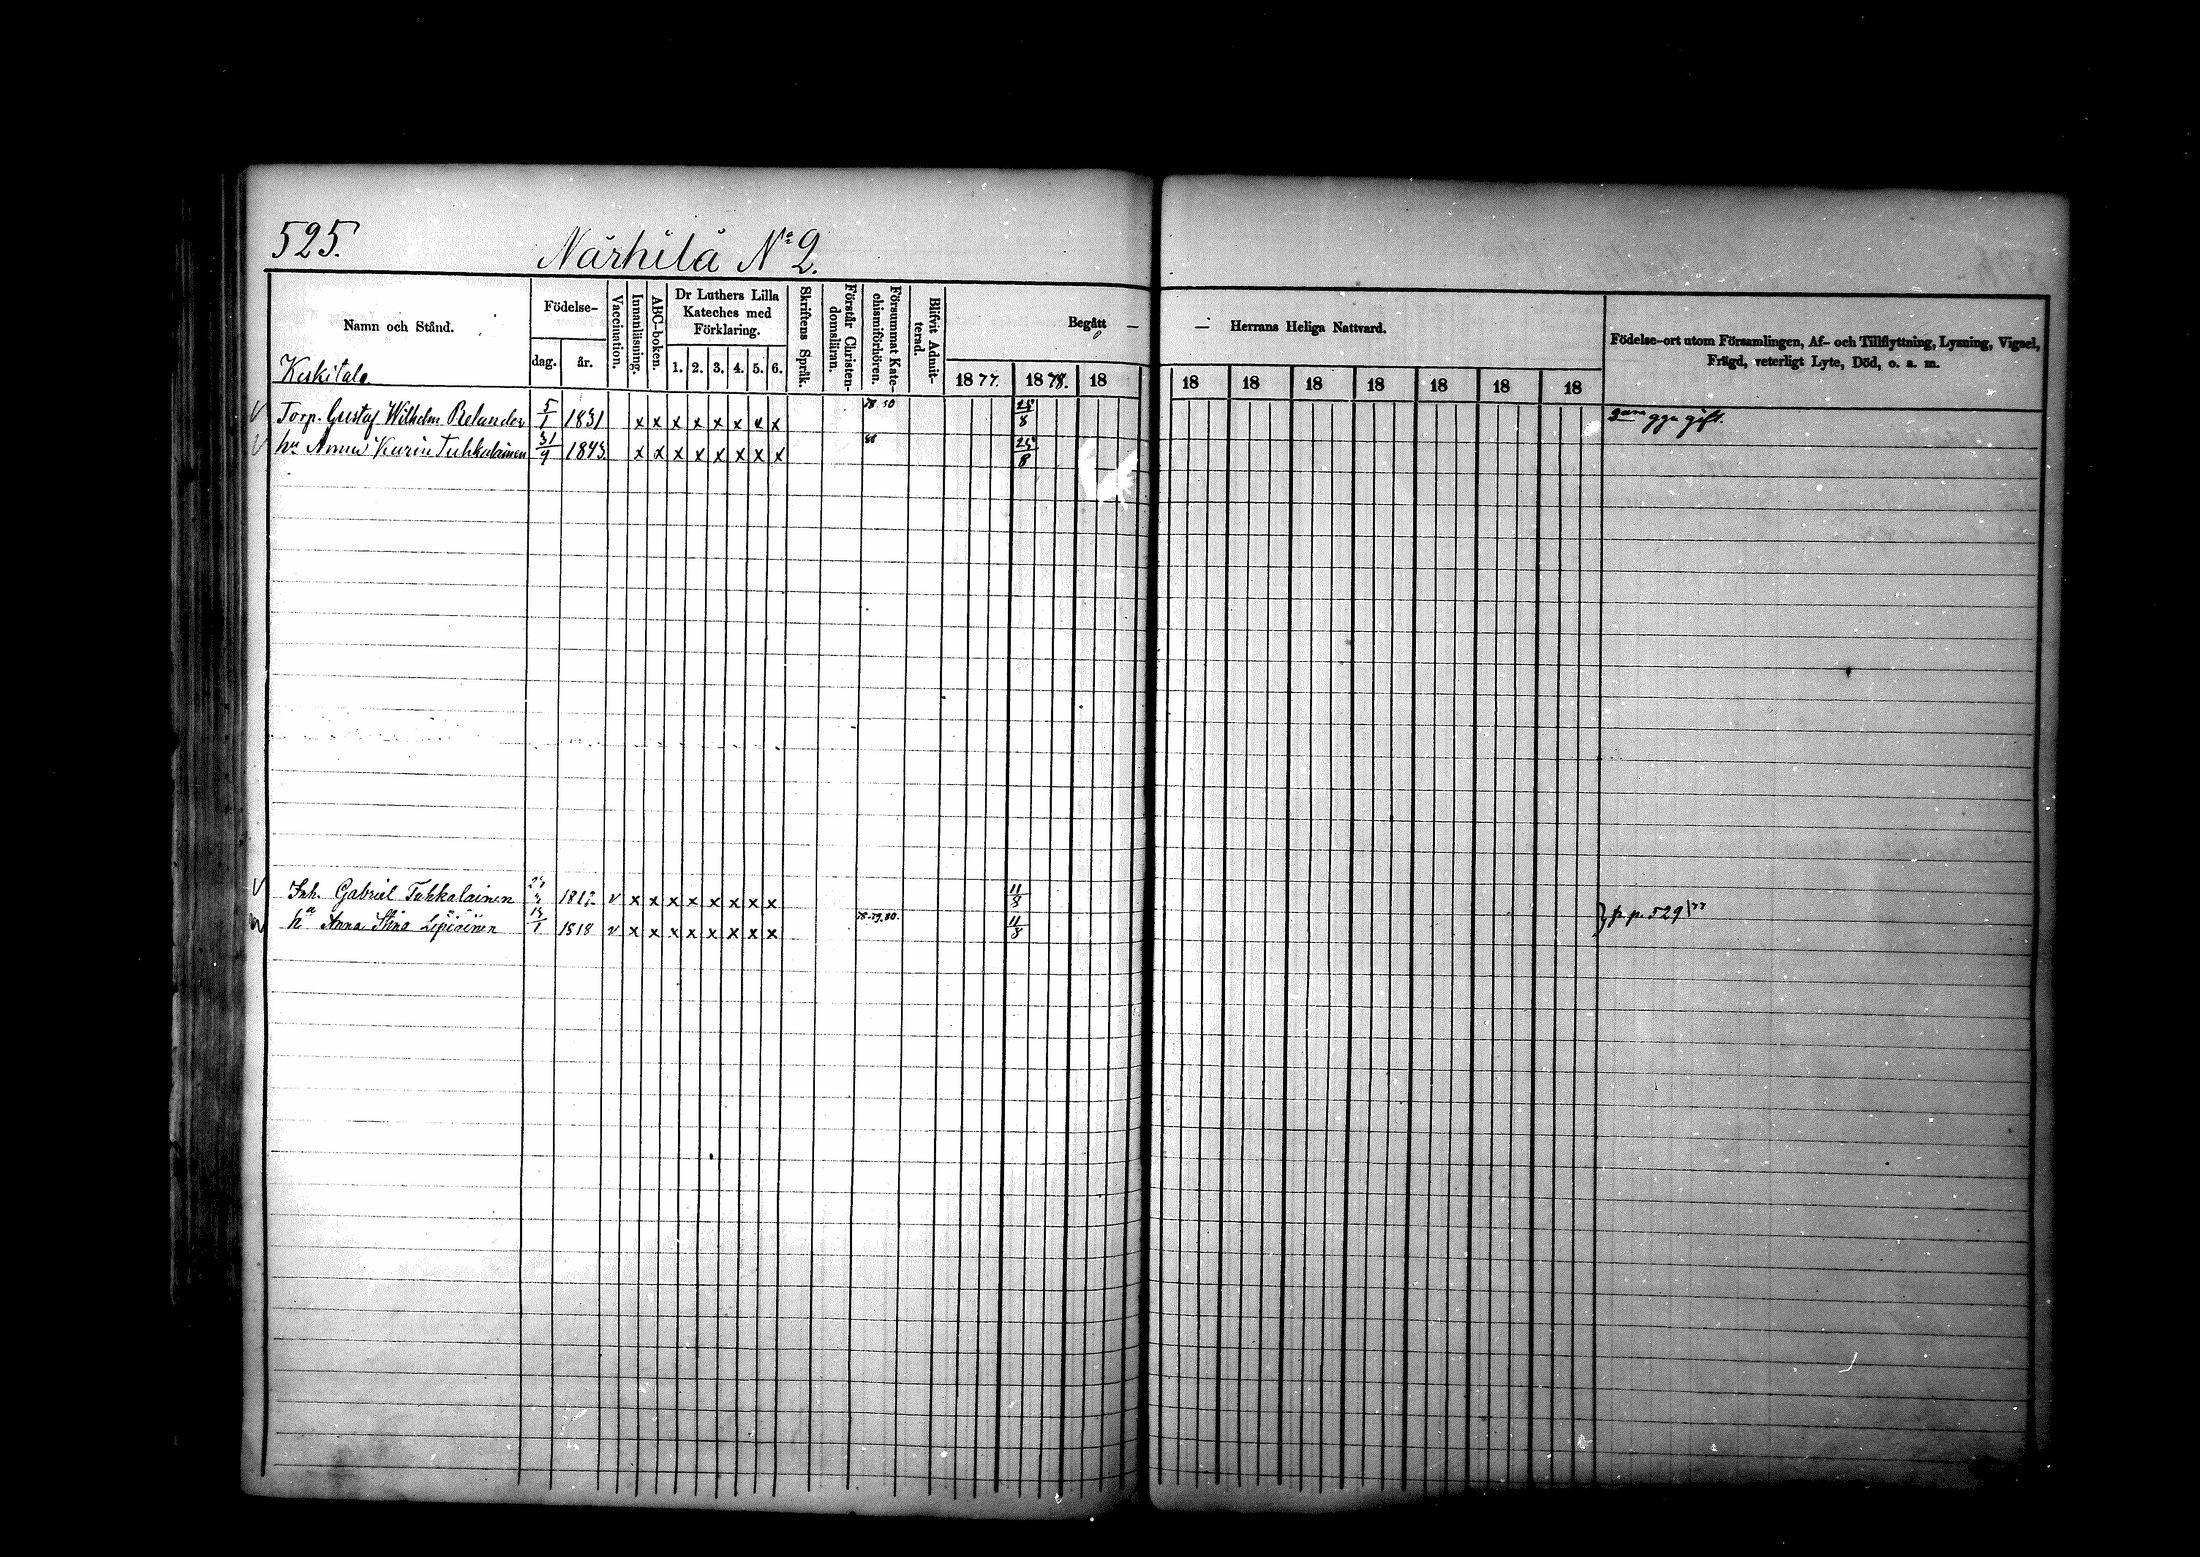 525. Närhilä No 2.
Namn och Stånd.
Födelse-
dag. år.
Vaccination.
Innanläsning.
ABC-boken.
Dr Luthers Lilla
Kateches med
Förklaring.
1. 2. 3. 4. 5. 6.
Skriftens Språk.
Förstår Christen-
domsläran.
Försummat Kate-
chismiförhören.
Blifvit Admit-
terad.
Begått — — Herrans Heliga Nattvard.
1877. 1878. 18 18 18 18 18 18 18 18
Födelse-ort utom Församlingen, Af- och Tillflyttning, Lysning, Vigsel,
Frägd, veterligt Lyte, Död, o. a. m.
Keskitalo
v Torp. Gustaf Wilhelm Relander 5/1 1831 x x x x x x x x 78 80 25/8 gyn gift.
v hu Anna Karin Tuhkalainen 31/9 1843 x x x x x x x x 25/8
v Inh. Gabriel Tuhkalainen 1812 v x x x x x x x x 11/8
hu Anna Stina Lepiäinen 1818 v x x x x x x x x 78.79.80. 11/8 p. 529